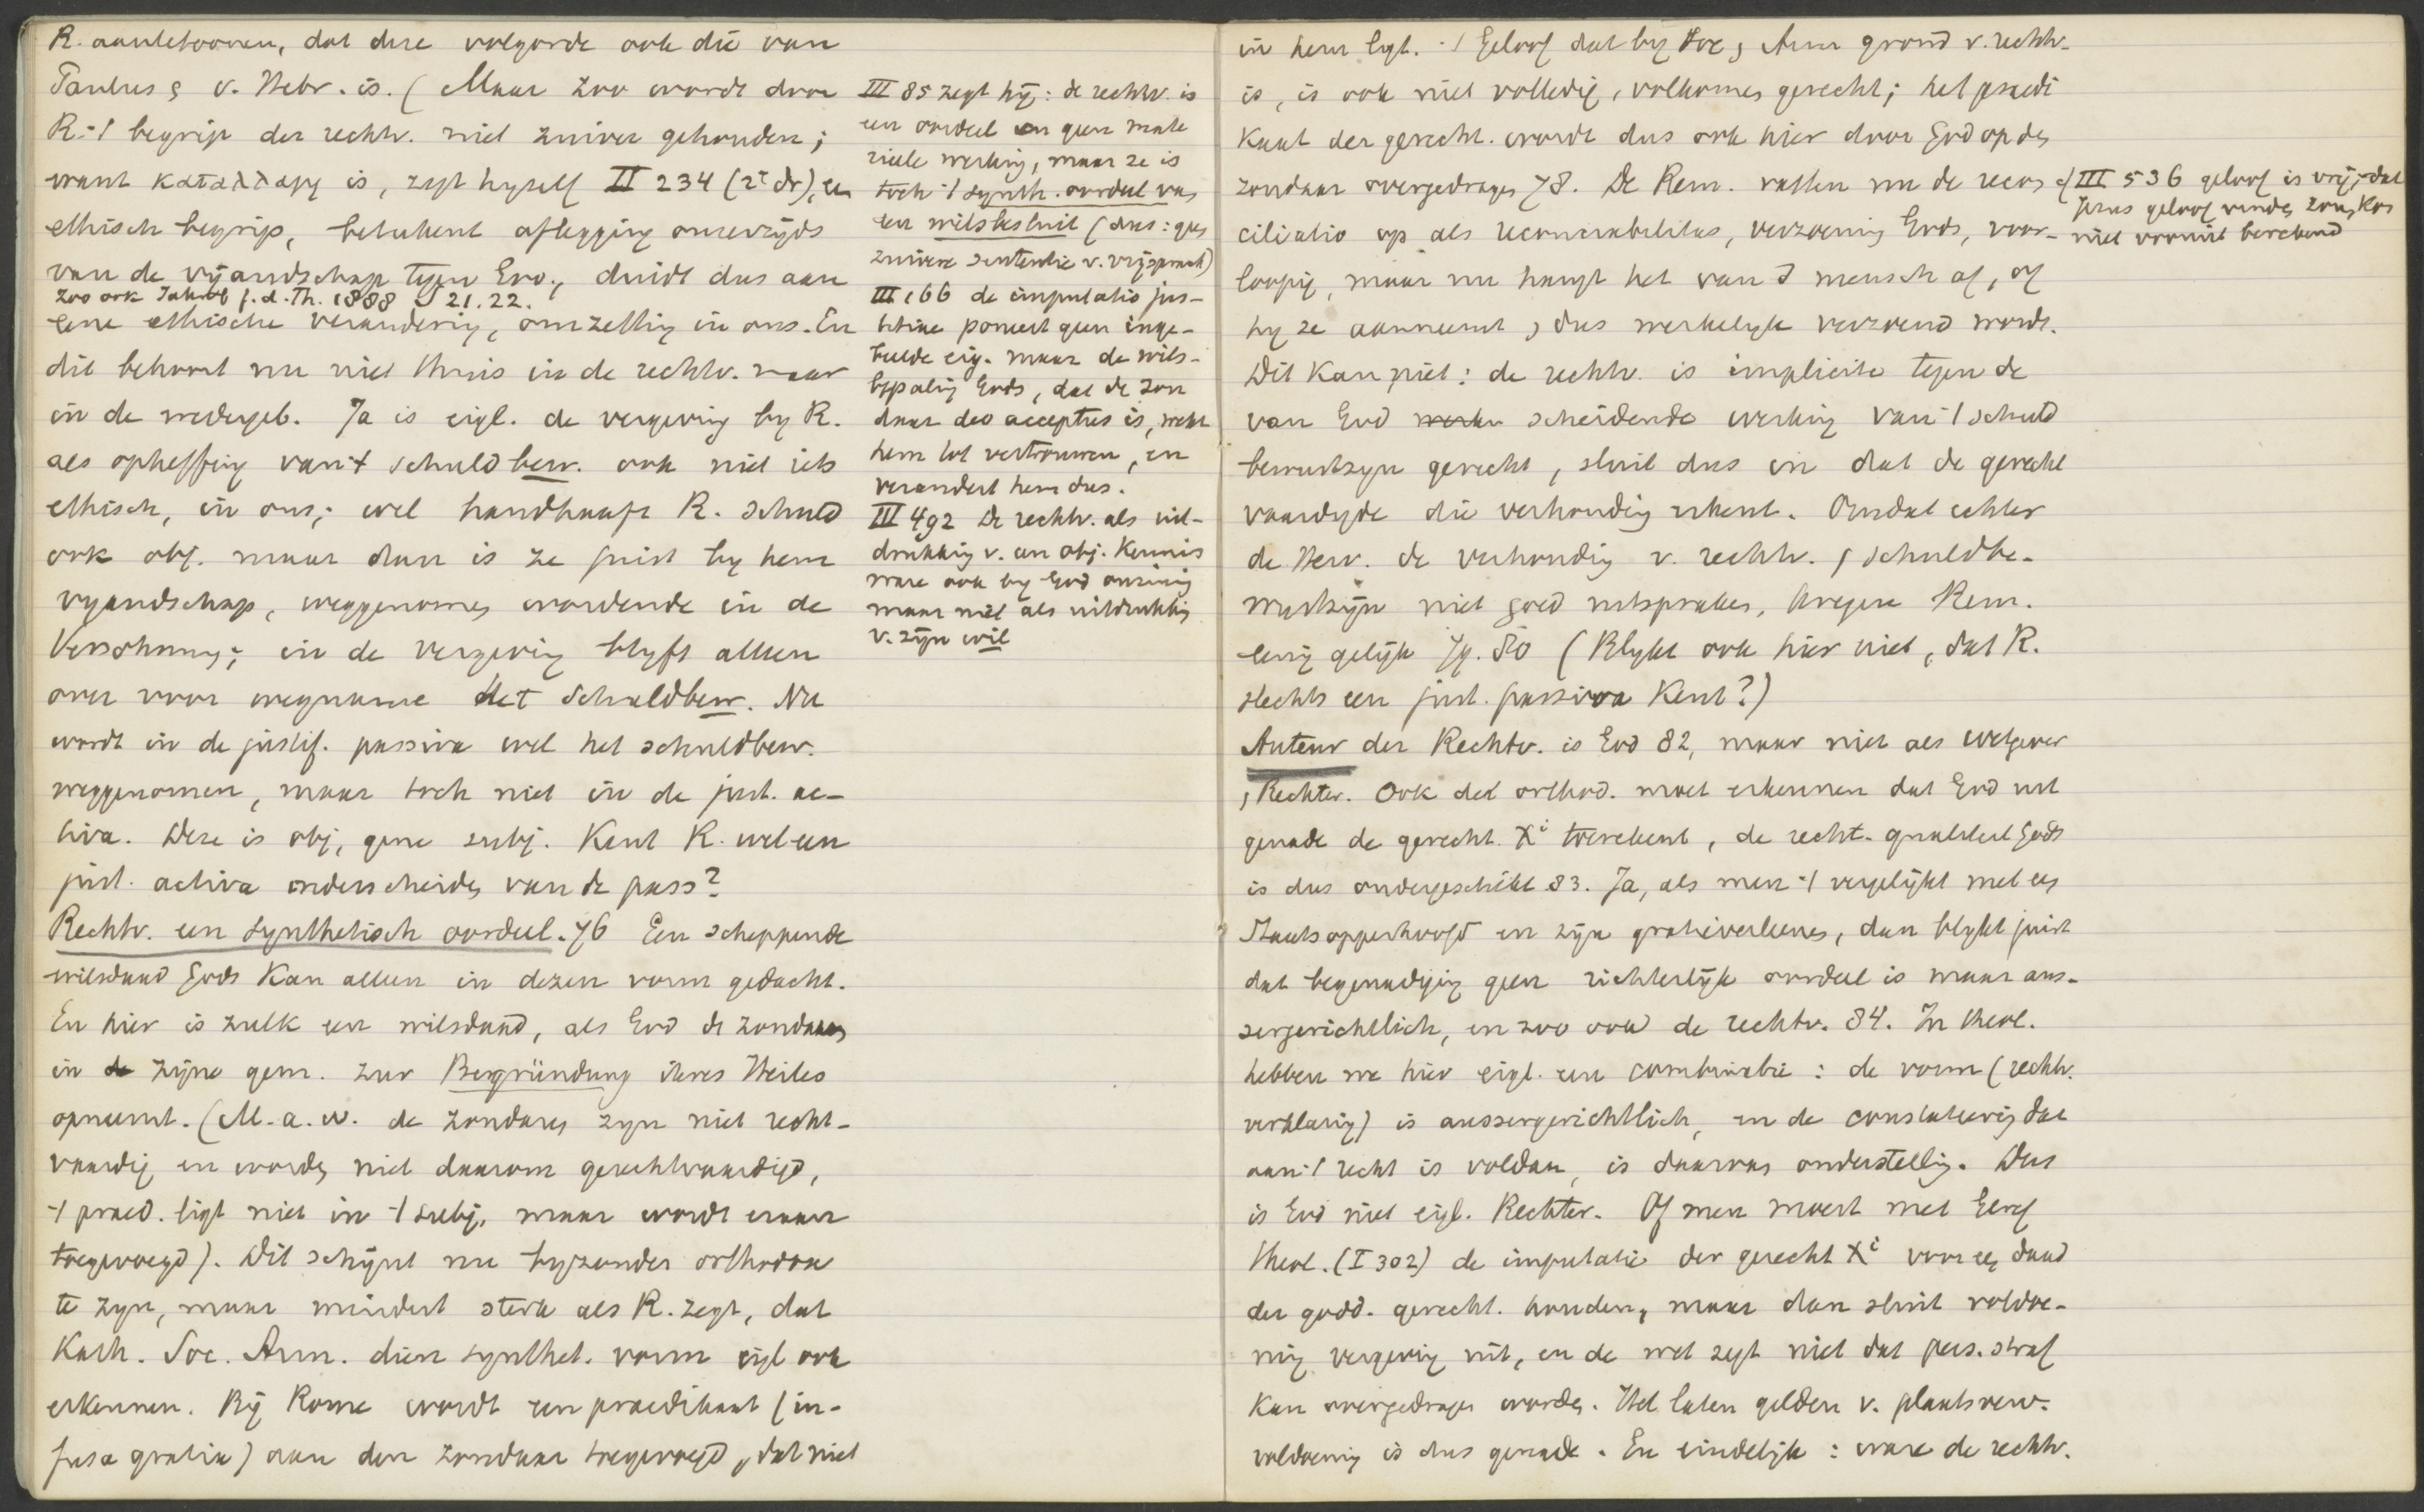 R. aantetoonen, dat deze volgorde ook die van
Paulus & v. Hebr. is. (Maar zoo wordt door
R. 't begrip der rechtv. niet zuiver gehouden;
want καταλλαγη is, zegt hyself II 234 (2e dr), een
ethisch begrip, beteekent aflegging onzerzijds
van de vijandschap tegen God, duidt dus aan
zoo ook Jahrb f. d. Th. 1888 S 21. 22.
eene ethische verandering, omzetting in ons. En
dit behoort nu niet thuis in de rechtv. maar
in de wedergeb. Ja is eigl. de vergeving by R.
als opheffing van 't schuldbew. ook niet iets
ethisch, in ons; wel handhaaft R. schuld
ook obj. maar dan is ze juist by hem
vyandschap, weggenomen wordende in de
Versöhnung; in de vergeving blyft alleen
over voor wegname het schuldbew. Nu
wordt in de justif. passiva wel het schuldbew.
weggenomen, maar toch niet in de just. ac-
tiva. Deze is obj, gene subj. Kent R. wel een
just. activa onderscheiden van de pass?
Rechtv. een synthetisch oordeel. 76 Een scheppende
wilsdaad Gods kan alleen in dezen vorm gedacht.
En hier is zulk een wilsdaad, als God de zondaars
in de zijne gem. zur Begründung ihres Heiles
opneemt. (M.a.w. de zondaren zyn niet recht-
vaardig en worden niet daarom gerechtvaardigd,
't praed. ligt niet in 't subj, maar wordt eraan
toegevoegd). Dit schijnt nu byzonder orthodox
te zyn, maar minder sterk als R. zegt, dat
Kath. Soc. Arm. dien synthet. vorm eigl ook
erkennen. Bij Rome wordt een praedikaat (in-
fusa gratia) aan den zondaar toegevoegd, dat niet
III 85 zegt hij: de rechtv. is
een oordeel en geen mate
rieele werking, maar ze is
toch 't synth. oordeel van
een wilsbesluit (dus: geen
zuivere sententie v. vrijspraak)
III 66 de imputatio jus-
titiae poneert geen inge-
beelde eig. maar de wils-
bepaling Gods, dat de zon
daar deo acceptus is, wekt
hem tot vertrouwen, en
verandert hem dus.
III 492 De rechtv. als uit-
drukking v. een obj. Kennis
ware ook by God onzinnig
maar niet als uitdrukking
v. zijn wil
in hem ligt. 't Geloof dat by Soc & Arm grond v. rechtv.
is, is ook niet volledig, volkomen gerecht; het praedi
kaat der gerecht. wordt dus ook hier door God op den
zondaar overgedragen 78. De Rem. vatten nu de recon
ciliatio op als reconciliabilitas, verzoening Gods, voor-
loopig, maar nu hangt het van d mensch af, of
hy ze aanneemt & dus werkelyk verzoend wordt.
Dit kan niet: de rechtv. is implicite tegen de
van God scheidende werking van 't schuld
bewustzyn gericht, sluit dus in dat de gerecht
vaardigde die verhouding erkent. Omdat echter
de Herv. de verhouding v. rechtv. & schuldbe-
wustzijn niet goed uitspraken, kregen Rem.
eenig gelijk 79. 80 (Blykt ook hier niet, dat R.
slechts een just. passiva kent?)
Auteur der Rechtv. is God 82, maar niet als wetgever
& Rechter. Ook de orthod. moet erkennen dat God uit
genade de gerecht. Xi toerekent, de recht-qualiteit Gods
is dus ondergeschikt 83. Ja, als men 't vergelijkt met een
Staatsopperhoofd en zijn gratieverleenen, dan blykt juist
dat begenadiging geen richterlijk oordeel is maar aus-
sergerichtlich, en zoo ook de rechtv. 84. In theol.
hebben we hier eigl. een combinatie: de vorm (rechtv.
verklaring) is aussergerichtlich, en de constateering dat
aan 't recht is voldaan, is daarvan onderstelling. Dus
is God niet eigl. Rechter. Of men moest met Gerh
theol. (I 302) de imputatie der gerecht Xi voor een daad
der godd. gerecht. houden, maar dan sluit voldoe-
ning vergeving uit, en de wet zegt niet dat pers. straf
kan overgedragen worden. Het laten gelden v. plaatsverv.
voldoening is dus genade. En eindelijk: ware de rechtv.
cf III 536 geloof is vrij, dat
Jezus geloof vinden zou, kon
niet vooruit berekend